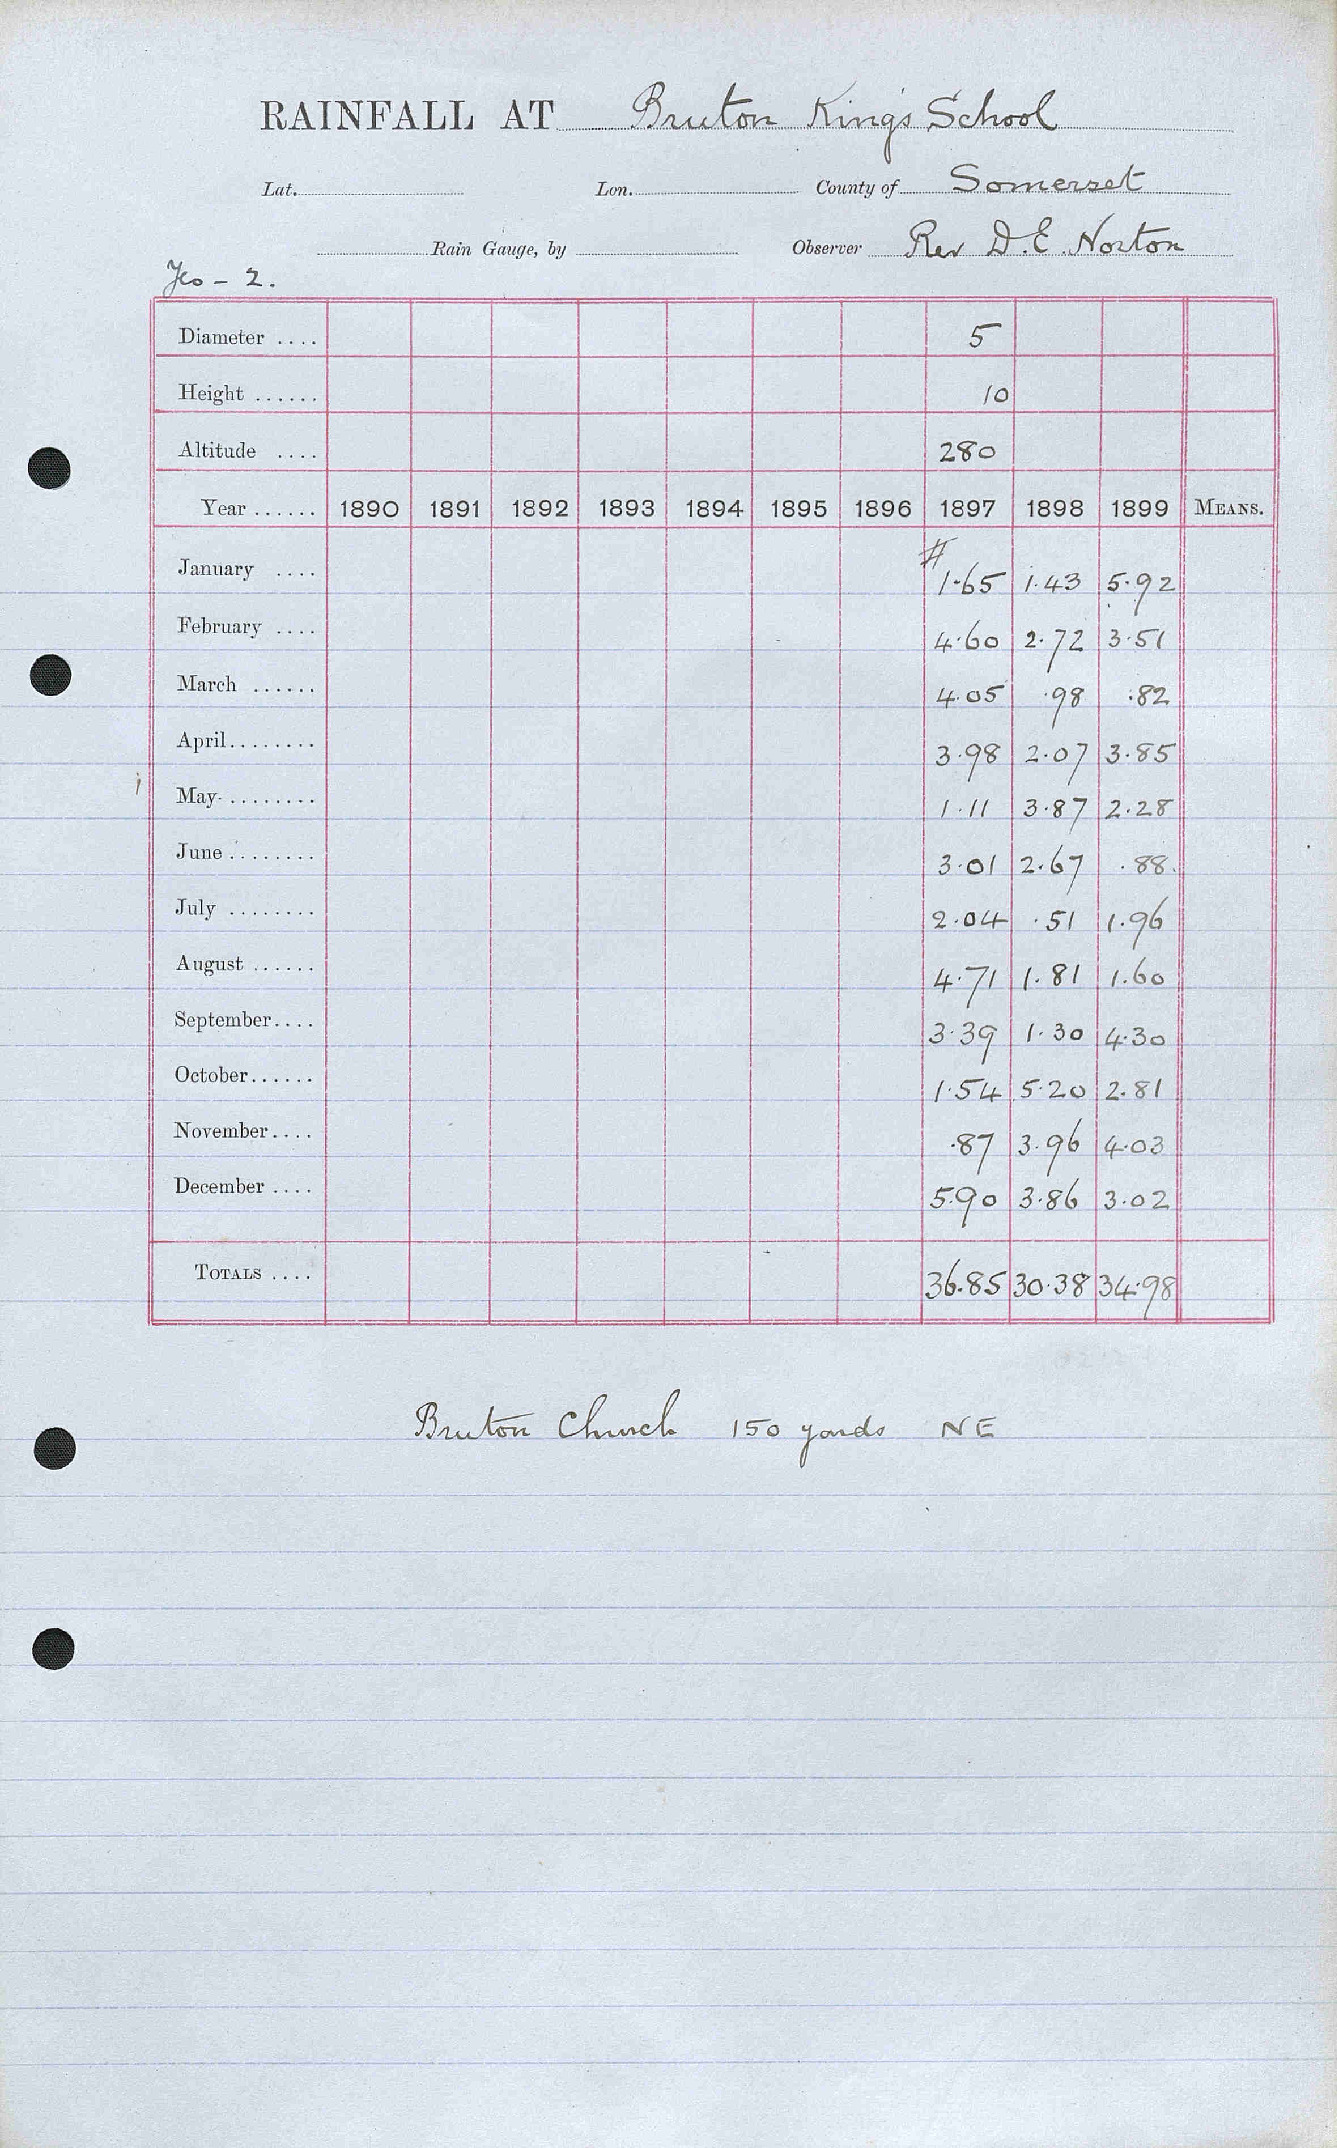 RAINFALL AT Bruton King's School
Lat. Lon. County of Somerset
Rain Gauge, by Observer Rev D.E. Norton
- 2.
Diameter .... 5
Height ...... 10
Altitude .... 280
Year ...... 1890 1891 1892 1893 1894 1895 1896 1897 1898 1899 MEANS.
#
January .... 1.65 1.43 5.92
February .... 4.60 2.72 3.51
March ...... 4.05 .98 .82
April........ 3.98 2.07 3.85
May ........ 1.11 3.87 2.28
June ........ 3.01 2.67 .88
July ........ 2.04 .51 1.96
August ...... 4.71 1.81 1.60
September.... 3.39 1.30 4.30
October...... 1.54 5.20 2.81
November.... .87 3.96 4.03
December .... 5.90 3.86 3.02
TOTALS .... 36.85 30.38 34.98
Bruton Church 150 yards NE